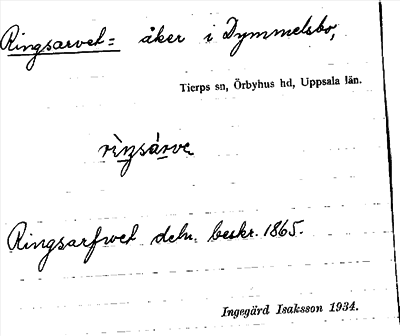 Ringsarvet = åker i Dymmelsbo,
Tierps sn, Örbyhus hd, Uppsala län.
rìŋsárve
Ringsarfwet deln. beskr. 1865.
Ingegärd Isaksson 1934.